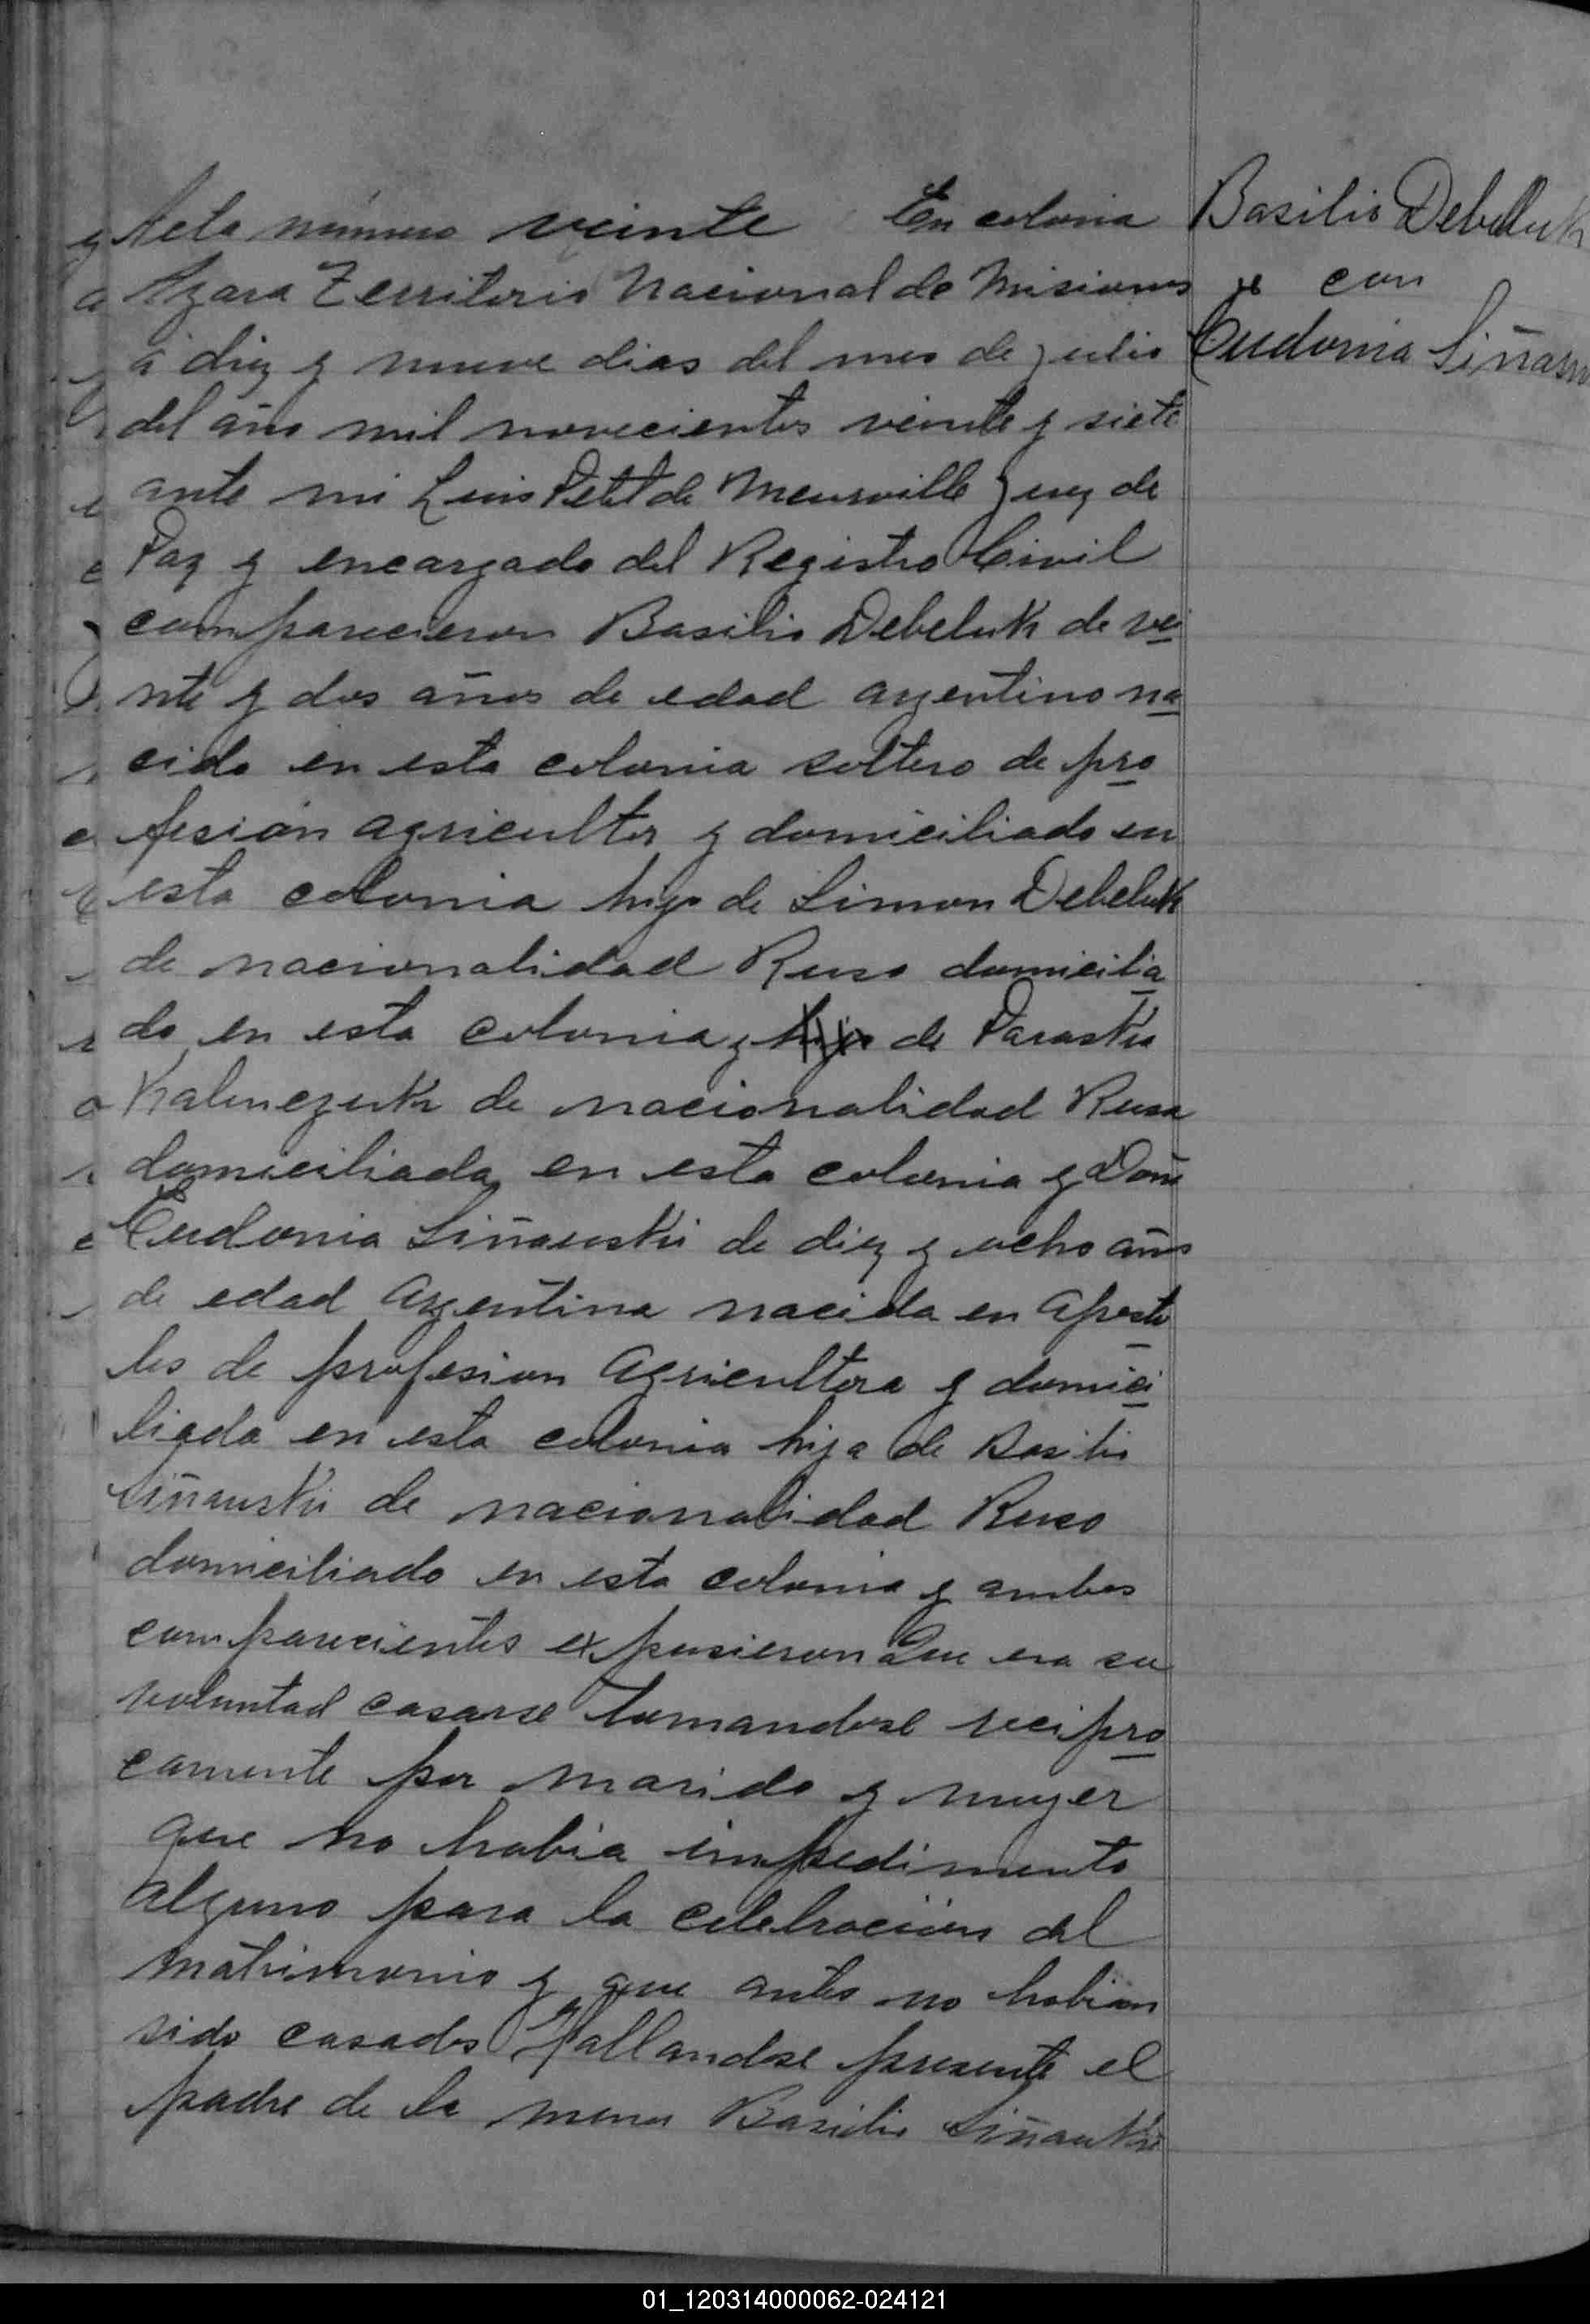 Acta número veinte En colonia
Azara Territorio Nacional de Misiones
á diez y nueve dias del mes de julio
del año mil novecientos veinte y siete
ante mi Luis Petit de Meurville Juez de
Paz y encargado del Registro Civil
comparecieron Basilio Debeluk de vei
nte y dos años de edad argentino na
cido en esta colonia soltero de pro
fesión agricultor y domiciliado en
esta colonia hijo de Simon Debeluk
de nacionalidad Ruso domicilia
do en esta colonia y hijo de Paraska
Kalenczuk de nacionalidad Rusa
domiciliada en esta colonia y Doña
Eudonia Siñauski de diez y ocho años
de edad Argentina nacida en Aposto
les de profesion Agricultora y domici
liada en esta colonia hija de Basilio
Siñauski de nacionalidad Ruso
domiciliado en esta colonia y ambos
comparecientes expusieron Que era su
voluntad casarse tomandose recipro
camente por marido y mujer
que no habia impedimento
alguno para la celebración del
matrimonio y que antes no habian
sido casados Hallandose presente el
padre de la menor Basilio Siñauski
Basilio Debeluk
con
Eudonia Siñaus
01_120314000062-024121